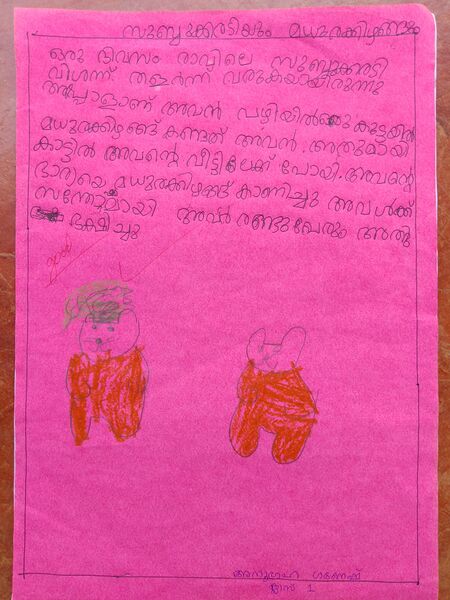 സുബ്ബുക്കരടിയും മധുരക്കിഴങ്ങും
ഒരു ദിവസം രാവിലെ സുബ്ബുക്കരടി
വിശന്ന് തളർന്ന് വരുകയായിരുന്നു
അപ്പോളാണ് അവൻ വഴിയിൽ ഒരു കൂട്ടയിൽ
മധുരക്കിഴങ്ങ് കണ്ടത് അവൻ. അതുമായി
കാട്ടിൽ അവന്റെ വീട്ടിലേക്ക് പോയി. അവന്റെ
ഭാര്യയെ മധുരക്കിഴങ്ങ് കാണിച്ചു അവൾക്ക്
സന്തോഷമായി അവർ രണ്ടുപേരും അതു
ഭക്ഷിച്ചു
good
അനുഗ്രഹ ഗണേഷ്
ക്ലാസ് 1